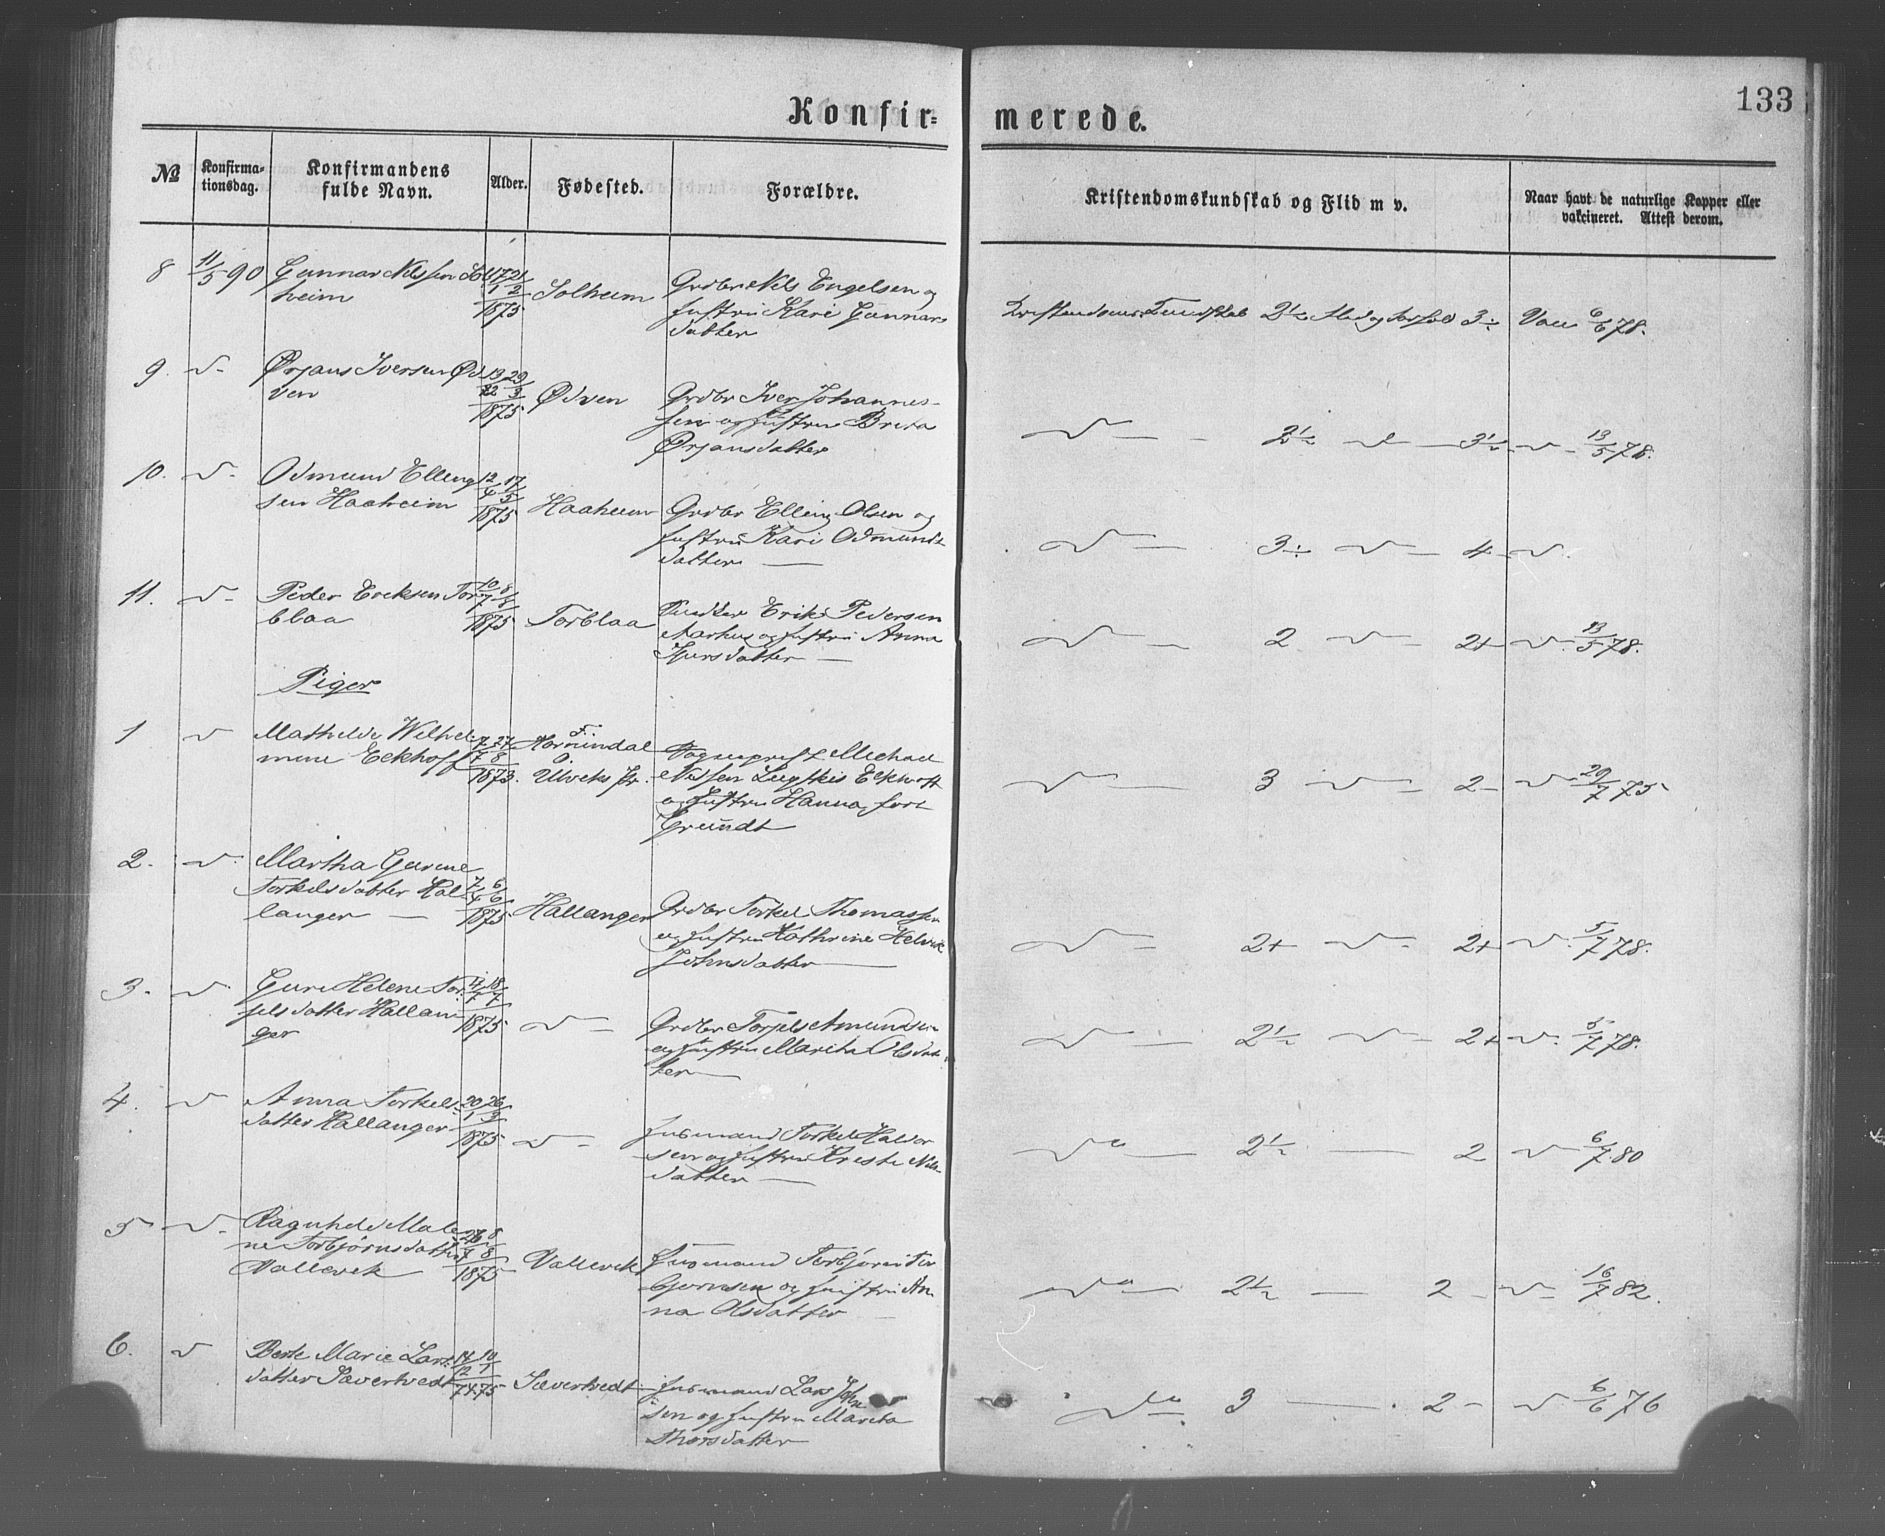 133
Konfir= merede.
№
Konfirma-
tionsdag.
Konfirmandens
fulde Navn.
Alder.
Fødested.
Forældre.
Kristendomskundskab og Flid m v.
Naar havt de naturlige Kopper eller
vakcineret. Attest derom.
8 11/5 90 Gunnar Nilssen Sol 17/1 21/2
heim 1875 Solheim Grdbr Nils Engelsen og
Hustru Kari Gunnars
datter
Kristendoms Kundskab 2½ Flid og Forhold 3÷ Vac 6/6 78.
9. Ørjans Iversen Ød 29/3
ven 1875 Ødven Grdbr Iver Johannes-
sen og Hustru Brita
Ørjansdatter
2½ 3½ 13/5 78.
10. Odmund Elling 12/4 17/5
sen Haaheim 1875 Haaheim Grdbr Elling Olsen og
Hustru Kari Odmunds
datter
3÷ 4
11. Peder Eriksen Tor 10/7 8/8
blaa 1875 Torblaa Erik Pedersen
Aarhus og Hustru Anna
datter
2 2+ 13/5 78.
Piger
1 Mathilde Wilhel 7/7 27/8
mine Eckhoff 1873. Hornindal
Ulviks Pr. Sogneprest Michael
Eckhoff
og Hustru Hanna født
Grundt
3 2 29/7 75
2. Martha Gurine
Torkelsdatter Hal 7/4 6/6
langer 1875 Hallanger Grdbr Torkel Thomassen
og Hustru Kathrine Helvik
Johnsdatter
2+ 2+ 5/7 78.
3. Guri Helene Tor 18/7
jelsdatter Hallan
ger 1875 Grdbr Torjels Amundsen
og Hustru Maritha Olsdat
ter
2½ 2+ 5/7 78.
4. Anna Torkels 20/1 26/3
datter Hallanger 1875 Husmand Torkel Haldor
sen og Hustru Kristi Nils
datter
2½ 2 6/7 80
5 Ragnhild Male
ne Torbjørnsdatter 26/7 8/8
Vallevik 1875 Vallevik Husmand Torbjørn Tor
bjørnsen og Hustru An
na Olsdatter
2½ 2 16/7 82.
6. Berte Marie Lars 14/12 10/1
datter Sævertvedt 74. 75 Sævertvedt Husmand Lars John
sen og Hustru Marita
Thorsdatter
3 2 6/6 76